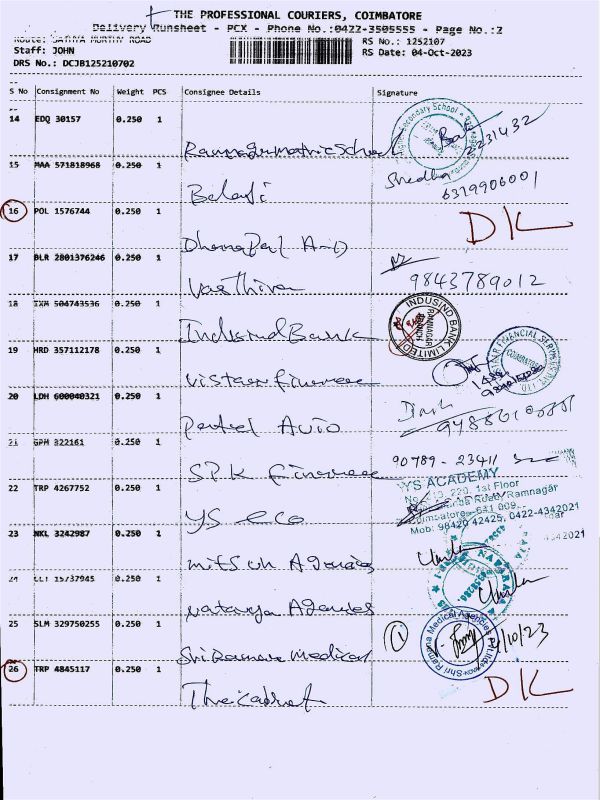 THE PROFESSIONAL COURIERS, COIMBATORE
Delivery Runsheet - PCX - Phone No.:0422-3505555 - Page No.:2
Route: SATHYA MURTHY ROAD
RS No.: 1252107
Staff: JOHN
RS Date: 04-Oct-2023
DRS No.: DCJB125210702
S No Consignment No Weight PCS Consignee Details Signature
14 EDQ 30157 0.250 1
Ramnagar matric School 2231432
15 MAA 571818968 0.250 1
Balaji 6379906001
16 POL 1576744 0.250 1
Dhanapal DK
17 BLR 2801376246 0.250 1
Vasthira 9843789012
18 IXM 504743536 0.250 1
IndusInd Bank INDUSIND BANK LIMITED RAMNAGAR BRANCH
19 HRD 357112178 0.250 1
Vistaar finance COIMBATORE
20 LDH 600040321 0.250 1
Patel Auto
21 GPM 322161 0.250 1
SPK Finance 90789 - 23411
22 TRP 4267752 0.250 1
YS eco YS ACADEMY
1st Floor
Road, Ramnagar
Coimbatore - 641 009.
Mob: 98420 42425, 0422-4342021
23 NKL 3242987 0.250 1
mitsuh Agencies
24 15737945 0.250 1
Agencies
25 SLM 329750255 0.250 1
Sri Ramana Medical Shri Ramana Medical Agencies 1 /10/23
26 TRP 4845117 0.250 1
The Cabinet DK